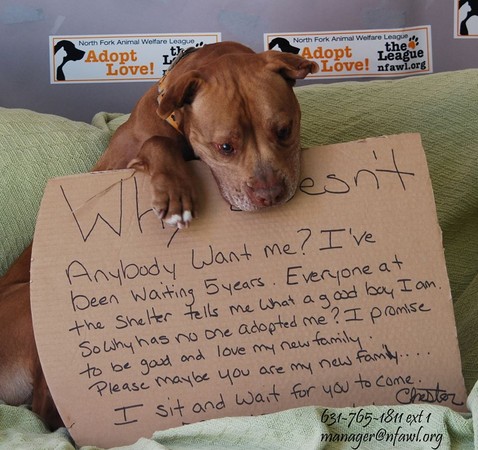 North Fork Animal Welfare League
Adopt
Love!
the
League
nfawl.org
North Fork Animal Welfare League
Adopt
Love!
the
League
nfawl.org
esn't
Anybody Want me? I've
been waiting 5 years. Everyone at
the shelter tells me what a good boy I am.
So why has no one adopted me? I promise
to be good and love my new family.
Please maybe you are my new family....
I sit and wait for you to come.
Chester
631-765-1811 ext 1
manager@nfawl.org